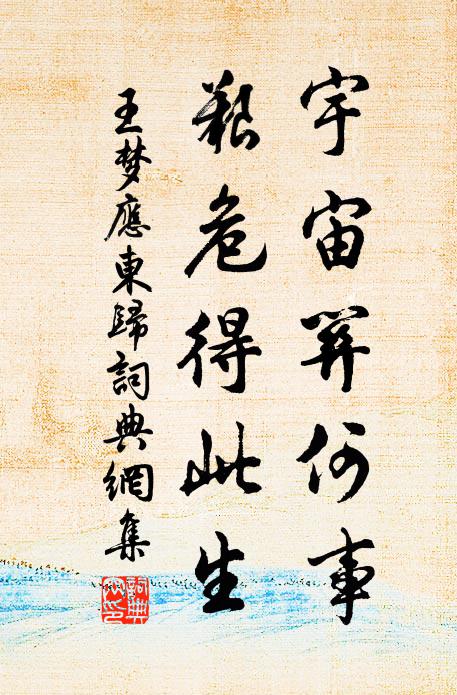 宇宙關何事
艱危得此生
王梦應東歸詞典網集